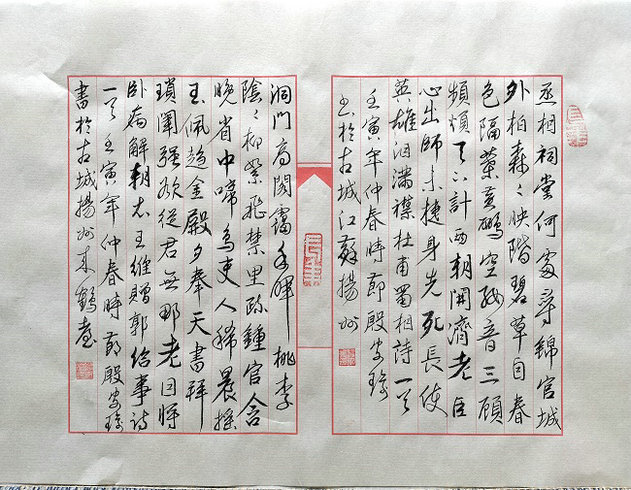 丞相祠堂何處尋錦官城
外柏森々映階碧草自春
色隔葉黃鸝空好音三顧
頻煩天下計兩朝開濟老臣
心出師未捷身先死長使
英雄泪滿襟杜甫蜀相詩一首
壬寅年仲春時節殷
書於古城江蘇揚州
洞門高閣靄余暉桃李
陰々柳絮飛禁里疏鐘官舍
晚省中啼鳥吏人稀晨搖
玉佩趨金殿夕奉天書拜
瑣闈强欲從君無那老因將
卧病解朝衣王維贈郭給事詩
一首壬寅年仲春時節殷
書於古城揚州來鶴臺